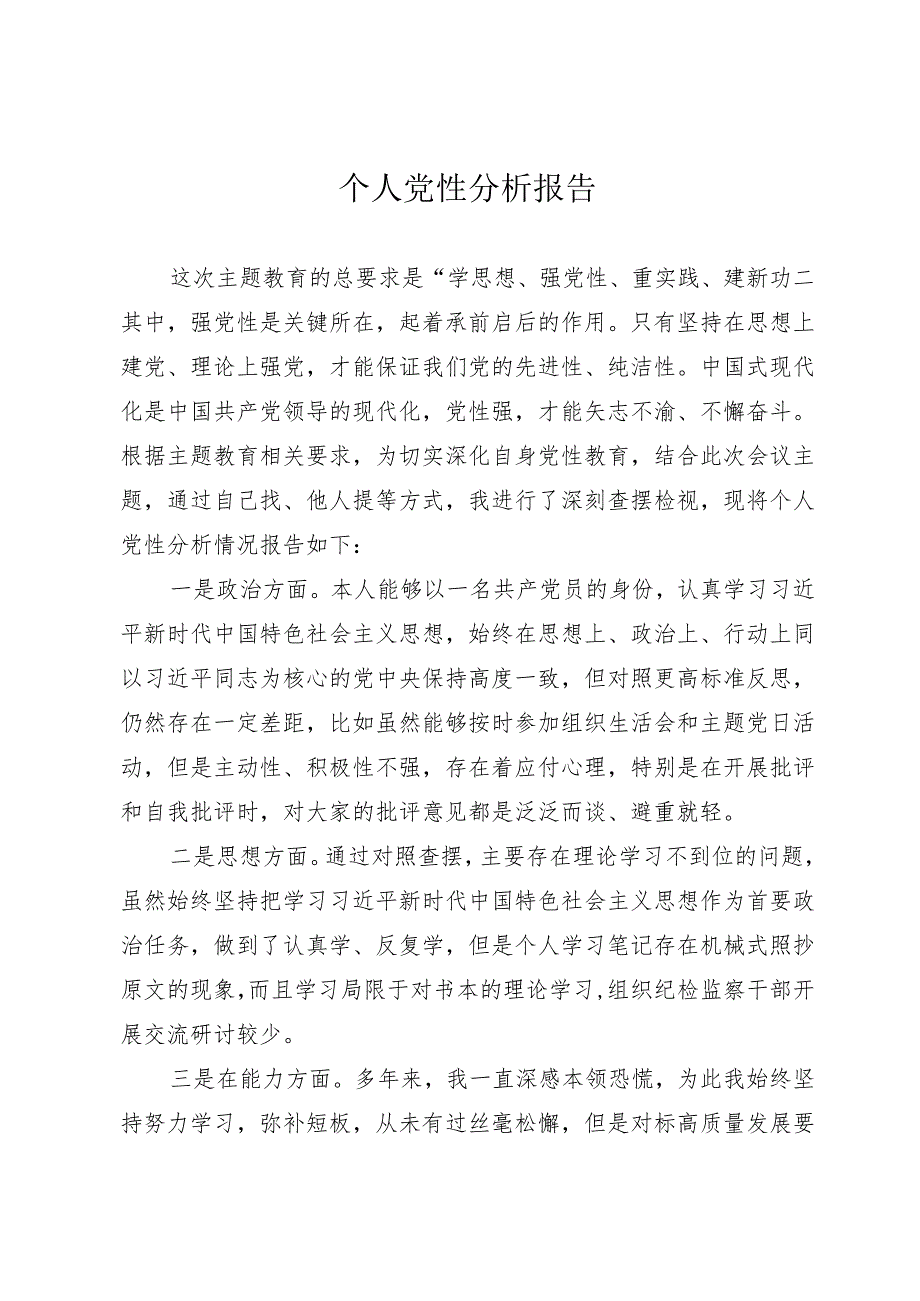 个人党性分析报告
这次主题教育的总要求是“学思想、强党性、重实践、建新功二
其中，强党性是关键所在，起着承前启后的作用。只有坚持在思想上
建党、理论上强党，才能保证我们党的先进性、纯洁性。中国式现代
化是中国共产党领导的现代化，党性强，才能矢志不渝、不懈奋斗。
根据主题教育相关要求，为切实深化自身党性教育，结合此次会议主
题，通过自己找、他人提等方式，我进行了深刻查摆检视，现将个人
党性分析情况报告如下：
一是政治方面。本人能够以一名共产党员的身份，认真学习习近
平新时代中国特色社会主义思想，始终在思想上、政治上、行动上同
以习近平同志为核心的党中央保持高度一致，但对照更高标准反思，
仍然存在一定差距，比如虽然能够按时参加组织生活会和主题党日活
动，但是主动性、积极性不强，存在着应付心理，特别是在开展批评
和自我批评时，对大家的批评意见都是泛泛而谈、避重就轻。
二是思想方面。通过对照查摆，主要存在理论学习不到位的问题，
虽然始终坚持把学习习近平新时代中国特色社会主义思想作为首要政
治任务，做到了认真学、反复学，但是个人学习笔记存在机械式照抄
原文的现象，而且学习局限于对书本的理论学习,组织纪检监察干部开
展交流研讨较少。
三是在能力方面。多年来，我一直深感本领恐慌，为此我始终坚
持努力学习，弥补短板，从未有过丝毫松懈，但是对标高质量发展要